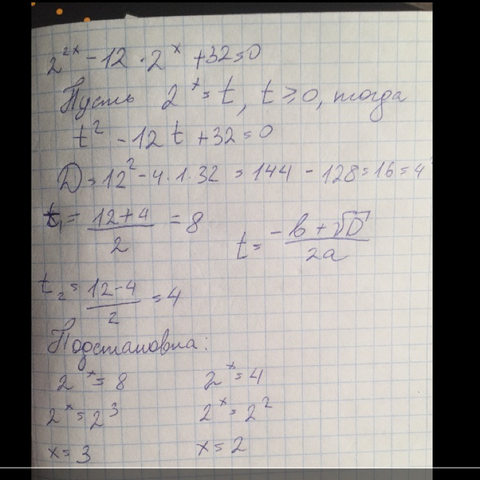 2^{2x} - 12 · 2^x + 32 = 0
Пусть 2^x = t, t ≥ 0, тогда
t^2 - 12t + 32 = 0
D = 12^2 - 4·1·32 = 144 - 128 = 16 = 4
t_1 = \frac{12+4}{2} = 8
t = \frac{-b + \sqrt{D}}{2a}
t_2 = \frac{12-4}{2} = 4
Подстановка:
2^x = 8 2^x = 4
2^x = 2^3 2^x = 2^2
x = 3 x = 2